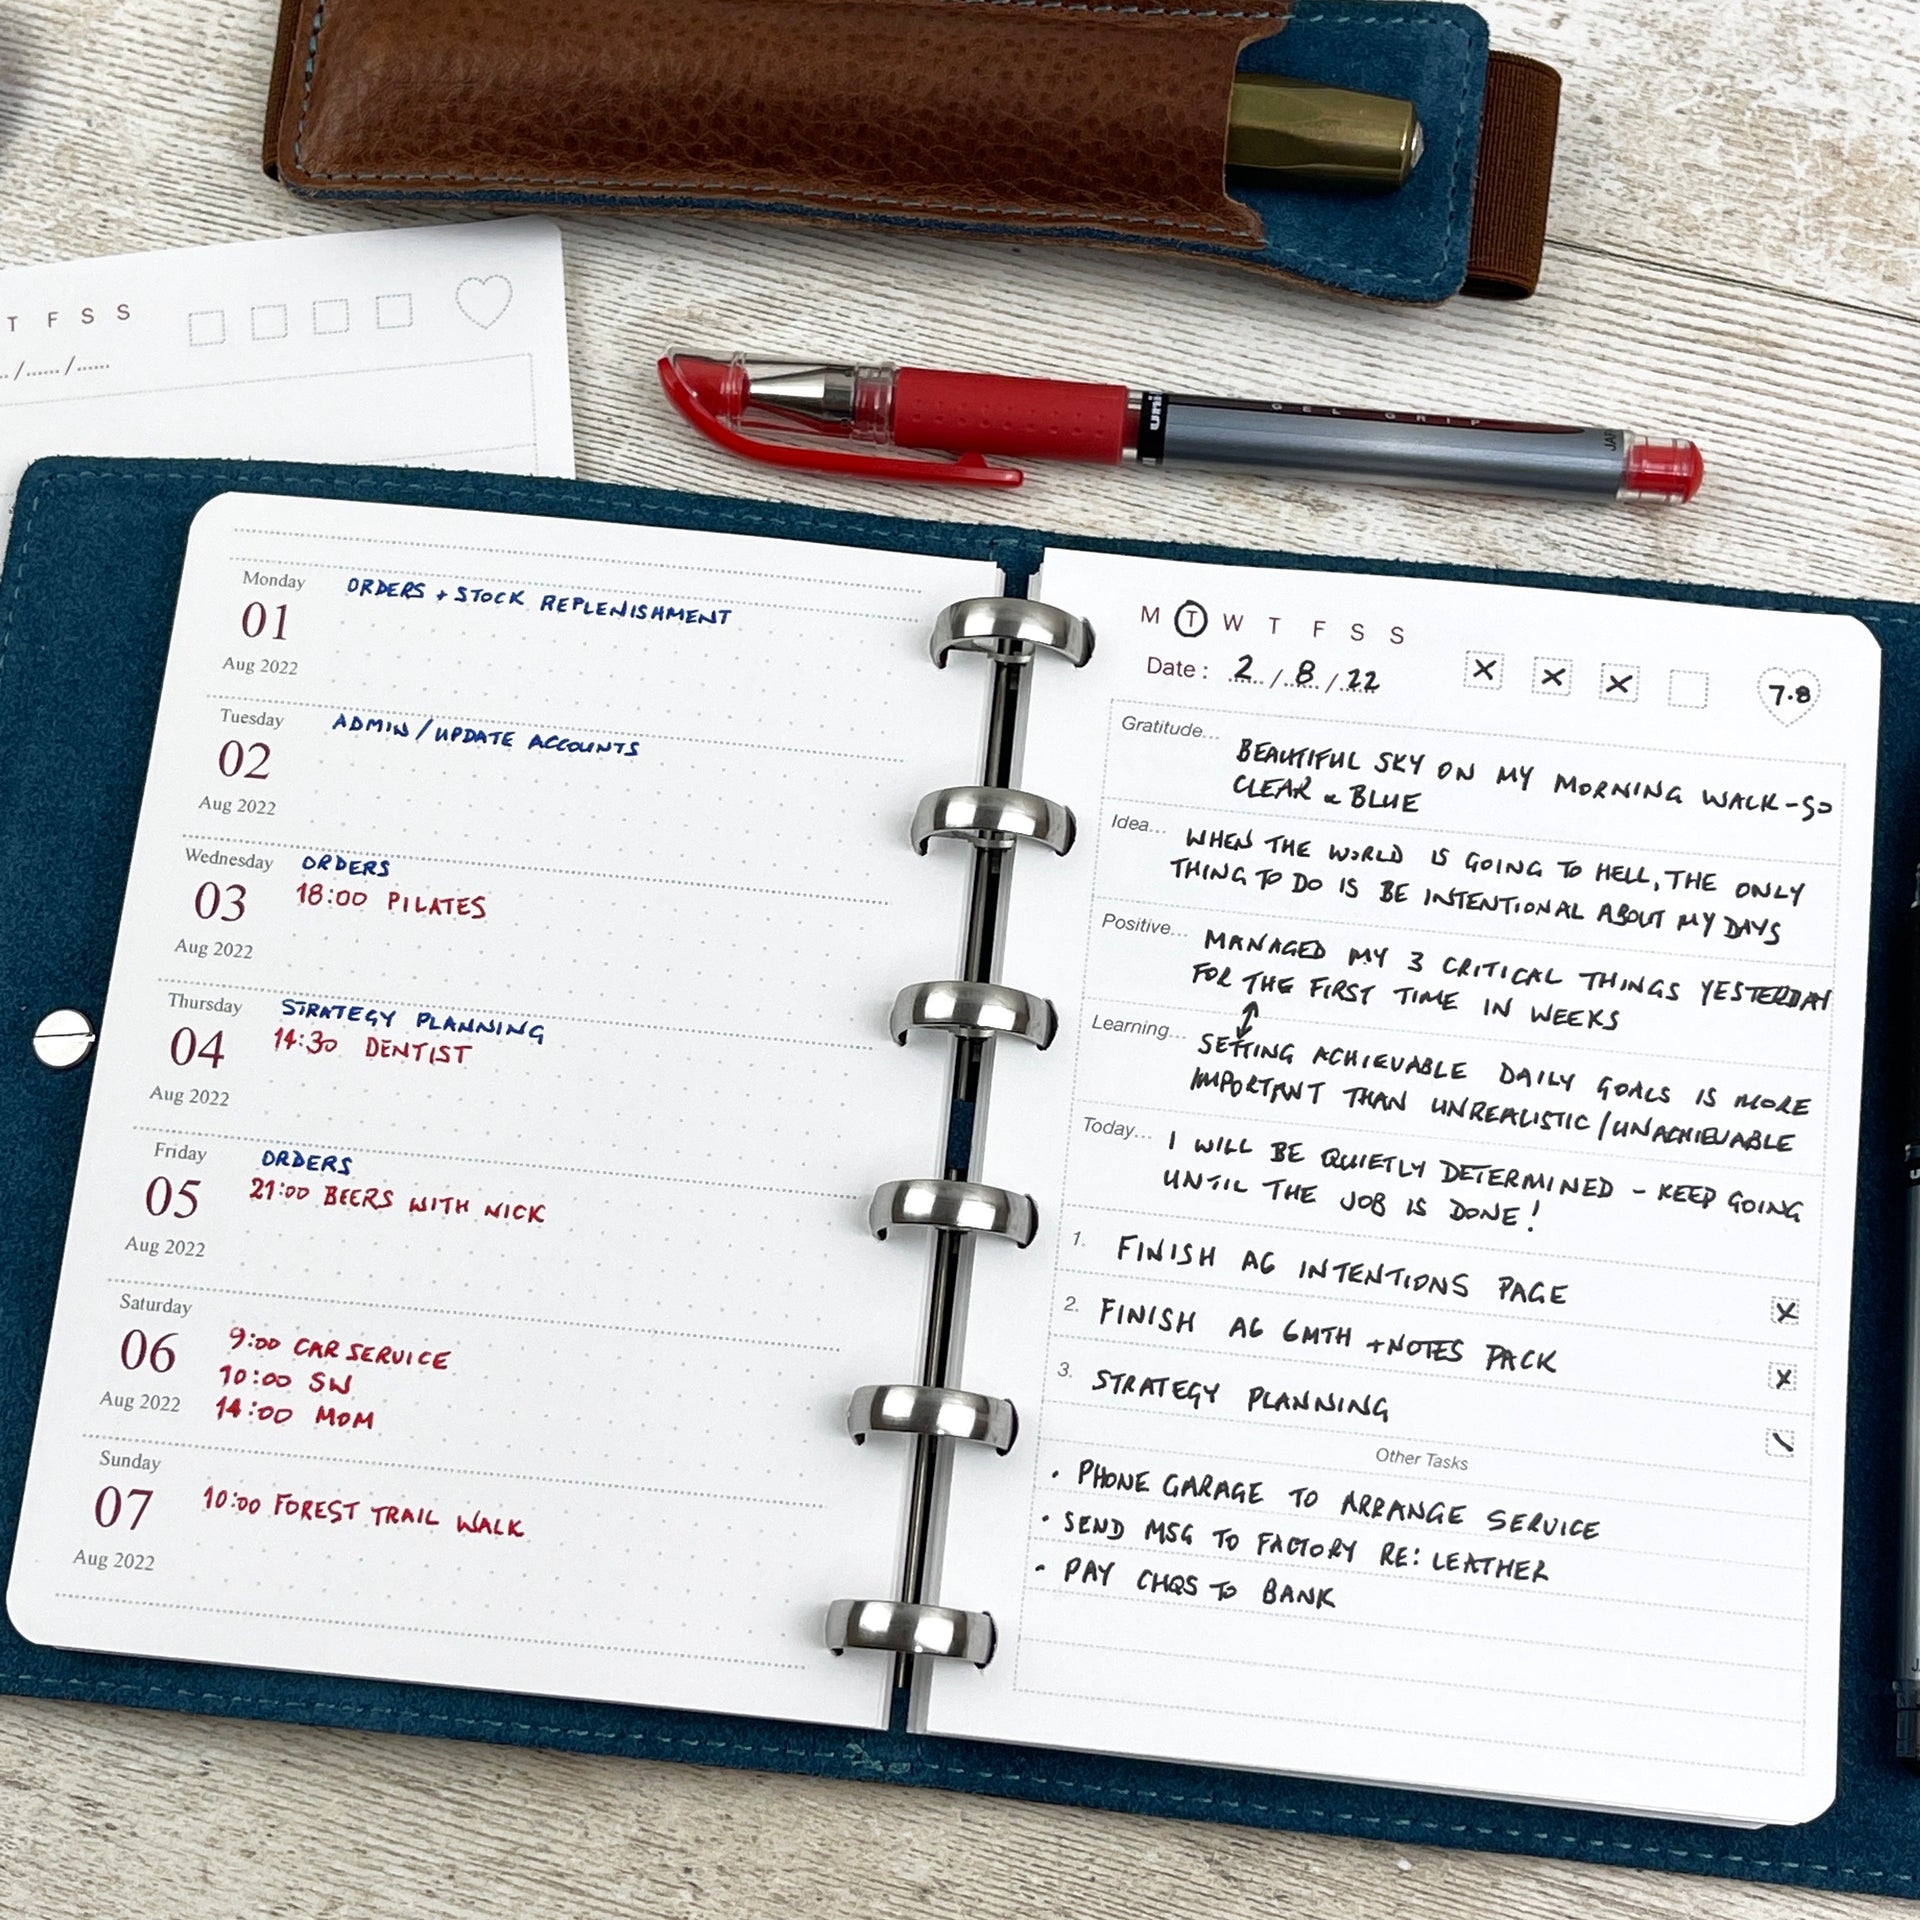 T F S S
/ /
uni
GEL GRIP
Monday
01
Aug 2022
ORDERS + STOCK REPLENISHMENT
Tuesday
02
Aug 2022
ADMIN / UPDATE ACCOUNTS
Wednesday
03
Aug 2022
ORDERS
18:00 PILATES
Thursday
04
Aug 2022
STRATEGY PLANNING
14:30 DENTIST
Friday
05
Aug 2022
ORDERS
21:00 BEERS WITH NICK
Saturday
06
Aug 2022
9:00 CAR SERVICE
10:00 SW
14:00 MOM
Sunday
07
Aug 2022
10:00 FOREST TRAIL WALK
M T W T F S S
Date : 2 / 8 / 22
X X X
7.8
Gratitude...
BEAUTIFUL SKY ON MY MORNING WALK - SO
CLEAR & BLUE
Idea...
WHEN THE WORLD IS GOING TO HELL, THE ONLY
THING TO DO IS BE INTENTIONAL ABOUT MY DAYS
Positive...
MANAGED MY 3 CRITICAL THINGS YESTERDAY
FOR THE FIRST TIME IN WEEKS
Learning...
SETTING ACHIEVABLE DAILY GOALS IS MORE
IMPORTANT THAN UNREALISTIC / UNACHIEVABLE
Today...
I WILL BE QUIETLY DETERMINED - KEEP GOING
UNTIL THE JOB IS DONE!
1. FINISH A6 INTENTIONS PAGE X
2. FINISH A6 6MTH + NOTES PACK X
3. STRATEGY PLANNING \
Other Tasks
• PHONE GARAGE TO ARRANGE SERVICE
• SEND MSG TO FACTORY RE: LEATHER
• PAY CHQS TO BANK